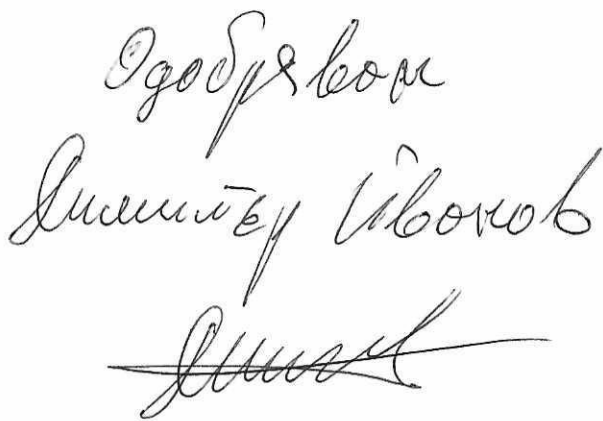 Одобрявам
Димитър Иванов